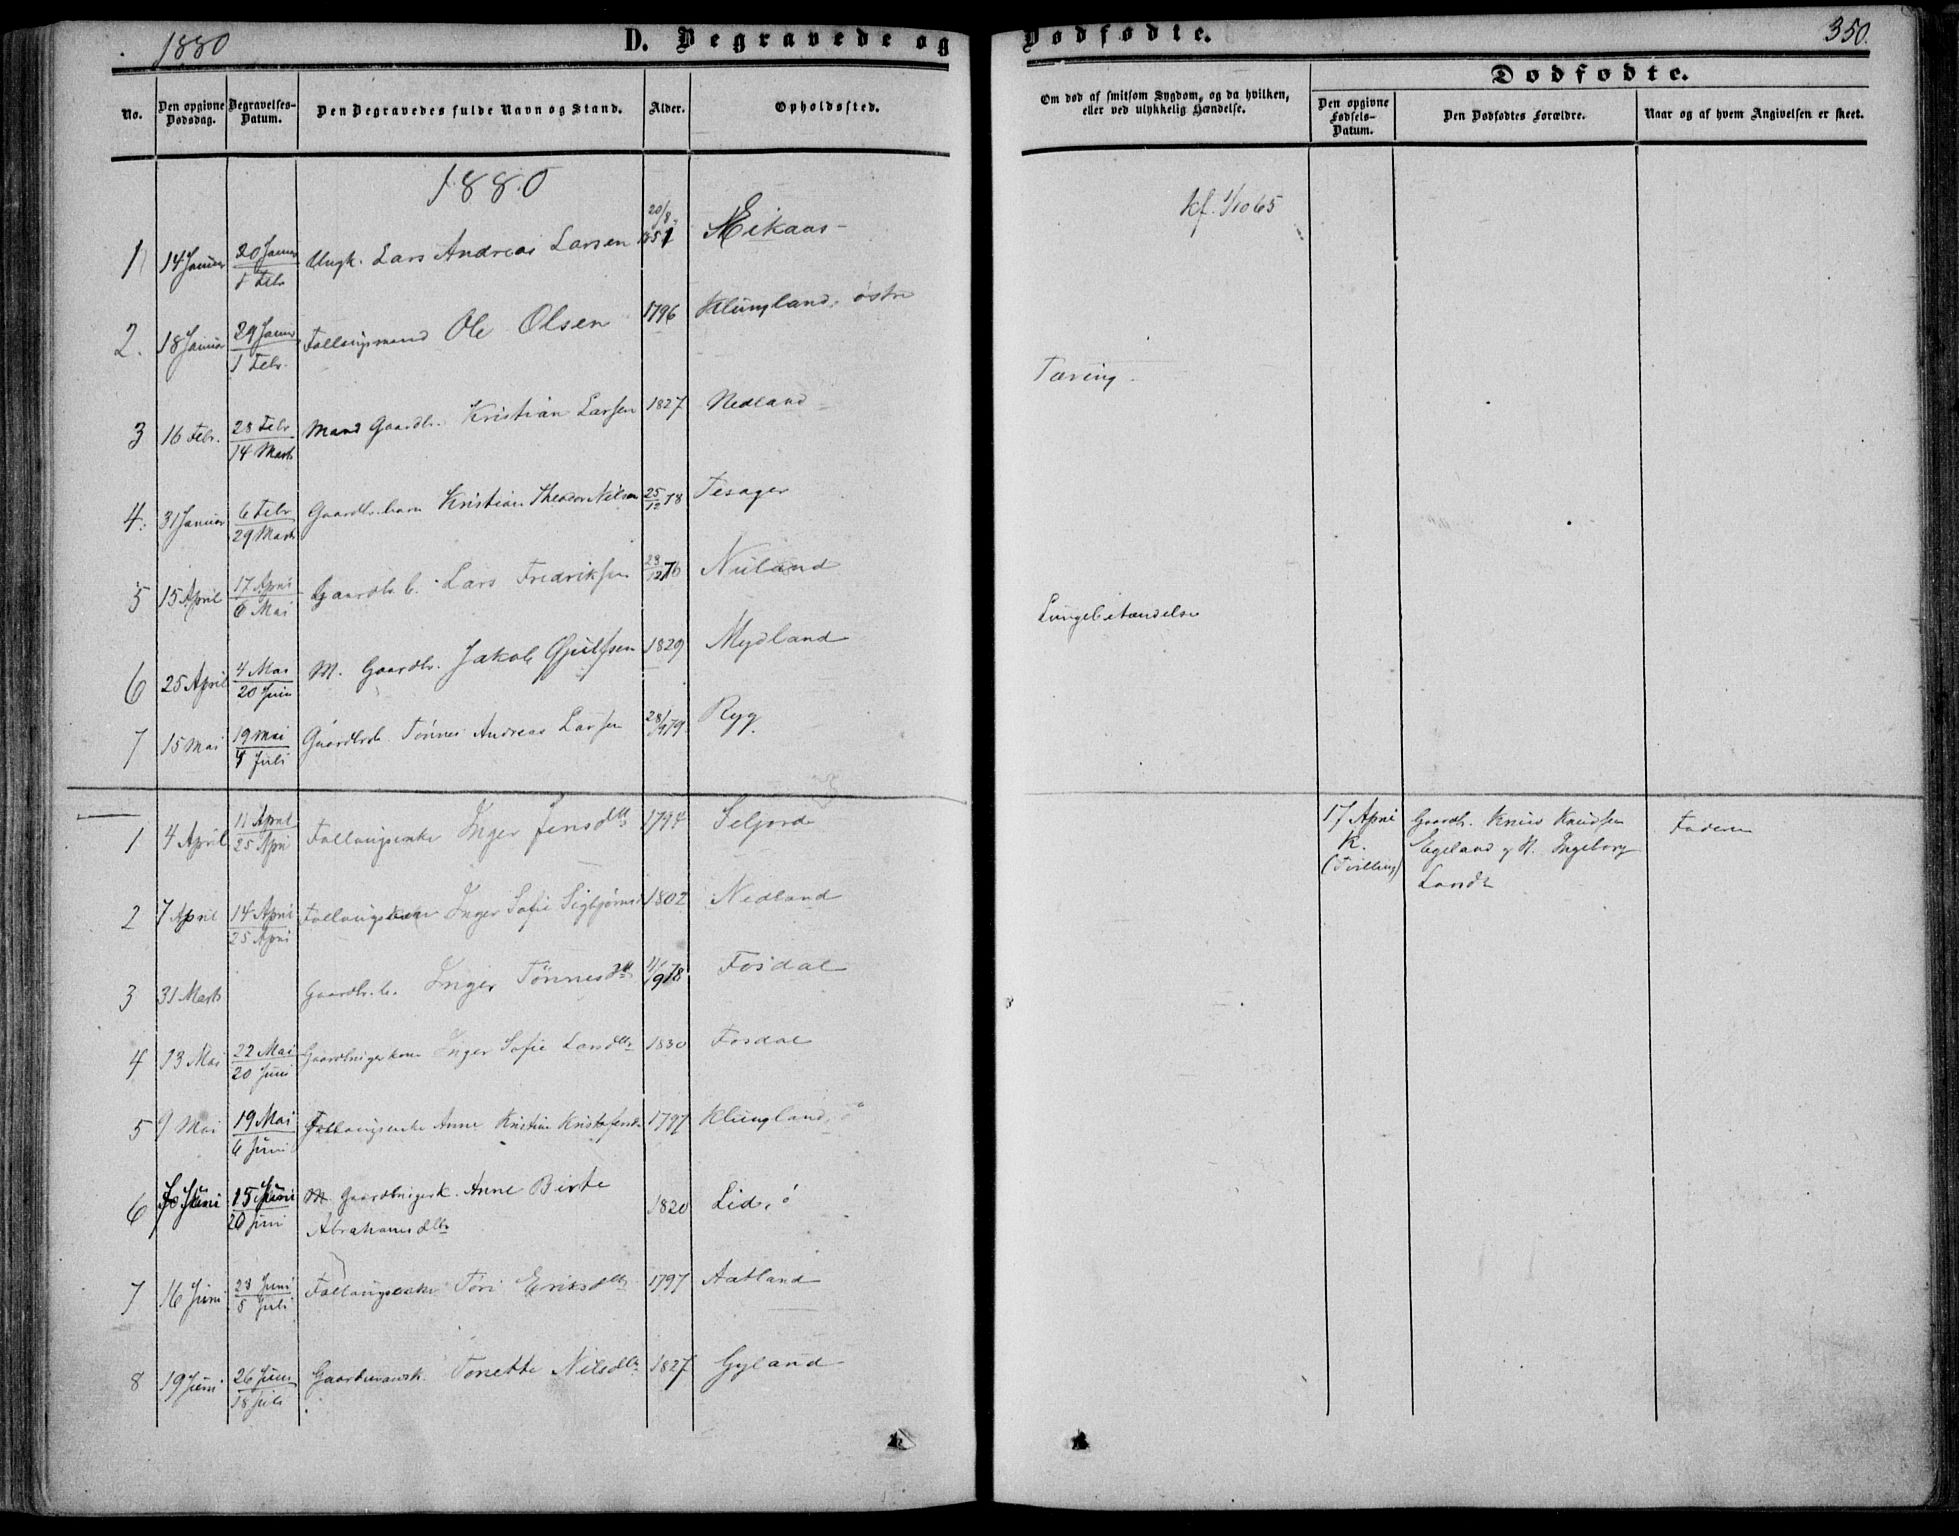 1880
D. Begravede og Dødfødte.
350.
No.
Den opgivne Dødsdag.
Begravelses-Datum.
Den Begravedes fulde Navn og Stand.
Alder.
Opholdssted.
Om død af smitsom Sygdom, og da hvilken, eller ved ulykkelig Hændelse.
Dødfødte.
Den opgivne Fødsels-Datum.
Den Dødfødtes Forældre.
Naar og af hvem Angivelsen er skeet.
1880
1 14 Januar 20 Januar Ungk. Lars Andreas Larsen 20/8 51 Meikaas
1 Febr
kf. 1/10 65
2. 18 Januar 29 Januar Follaugsmand Ole Olsen 1796 Klungland, østre
1 Febr.
Tæring
3 16 Febr. 28 Febr Mand Gaardbr. Kristian Larsen 1827 Nedland
14 Marts
4. 31 Januar 6 Febr Gaardbr. barn Kristian Theodor Nilsen 25/12 78 Tesager
29 Marts
5 15 April 17 April Gaardbr. b. Lars Fredriksen 23/12 76 Nuland
6 Mai
Lungebetændelse
6 25 April 4 Mai M. Gaardbr. Jakob Gjulfsen 1829 Mydland
20 Juni
7 15 Mai 19 Mai Gaardbrb. Tønnes Andreas Larsen 28/9 79 Ryg
4 Juli
1 4 April 11 April Follaugsenke Inger Jensdtr 1794 Seljorde
25 April
17 April Gaardbr. Knud Knudsen Faderen
K. Egeland og H. Ingeborg
(Tvilling)
2 7 April 14 April Follaugsenke Inger Sofie Sigbjørns 1802 Nedland
25 April
3 31 Marts Gaardbr. b. Inger Tønnesdtr 11/9 78 Fosdal
4 13 Mai 22 Mai Gaardbrugerkone Inger Sofie 1830 Fosdal
20 Juni
5 9 Mai 19 Mai Follaugsenke Anne Kristine Kristofersd. 1797 Klungland, ø
6 Juni
6 Juni 15 Juni M. Gaardbrugerk. Anne Birte 1820 Lid, ø
20 Juni Abrahamsdtr
7 16 Juni 23 Juni Follaugsenke Tori Eriksdtr 1797 Aatland
5 Juli
8 19 Juni 26 Juni Gaardmandsk. Tonette Nilsdtr 1827 Gyland
18 Juli